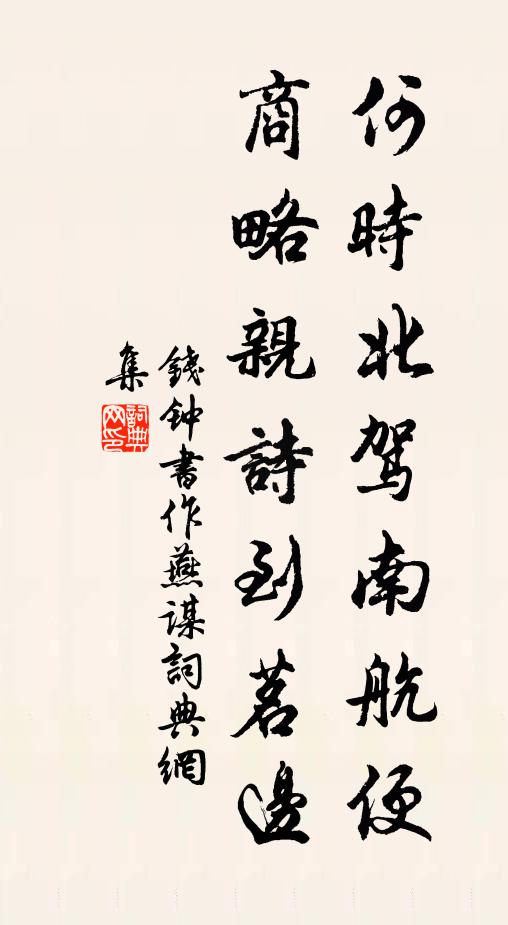 何時北駕南航便
商略親詩到茗邊
錢钟書作燕謀詞典網
集
詞典網印